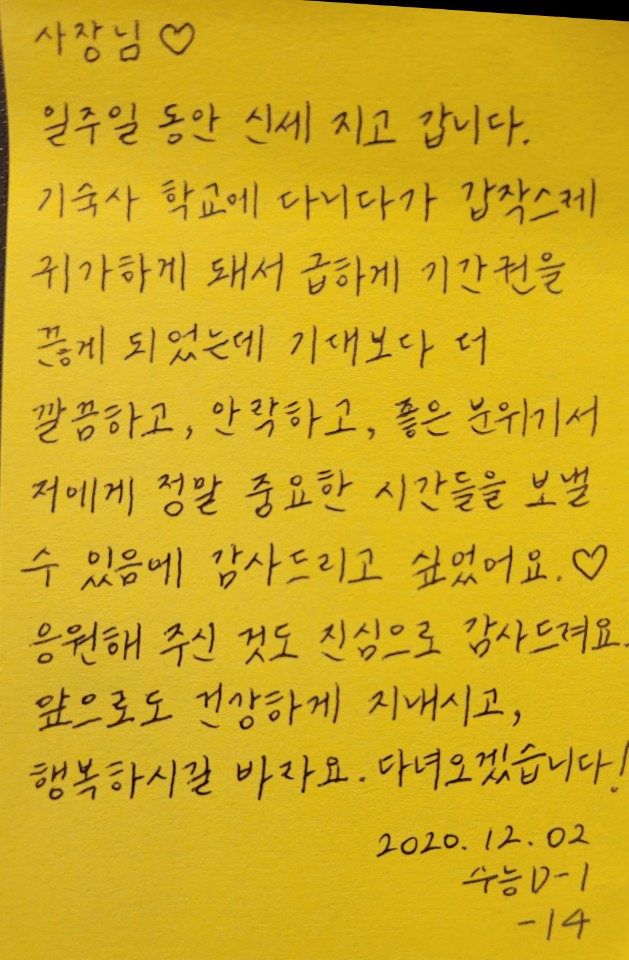 사장님♡
일주일 동안 신세 지고 갑니다.
기숙사 학교에 다니다가 갑작스레
귀가하게 돼서 급하게 기간권을
끊게 되었는데 기대보다 더
깔끔하고, 안락하고, 좋은 분위기서
저에게 정말 중요한 시간들을 보낼
수 있음에 감사드리고 싶었어요.♡
응원해 주신 것도 진심으로 감사드려요.
앞으로도 건강하게 지내시고,
행복하시길 바라요. 다녀오겠습니다!
2020. 12. 02
수능 D-1
-14